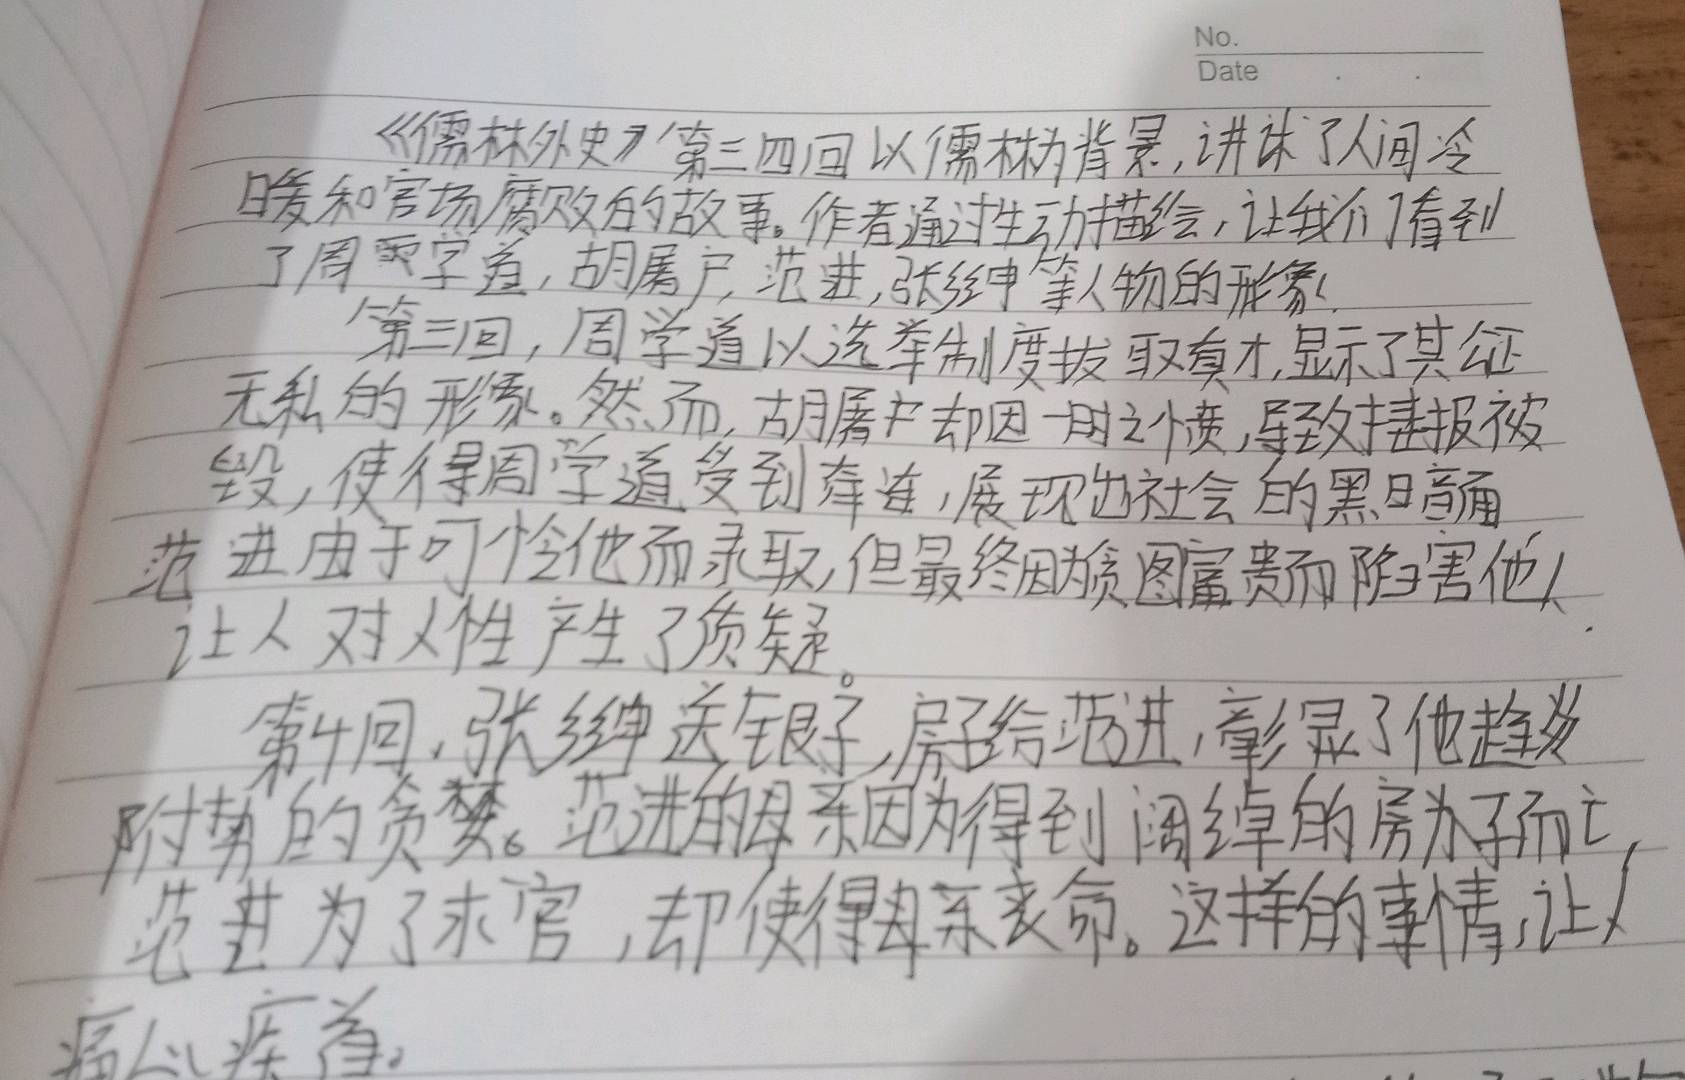 No.
Date
《儒林外史》第三四回以儒林为背景,讲述了人间冷
暖和官场腐败的故事。作者通过生动描绘,让我们看到
了周学道,胡屠户,范进,张绅等人物的形象.
第三回,周学道以选举制度拔取真才,显示了其公正
无私的形象。然而,胡屠户却因一时之愤,导致捷报被
毁,使得周学道受到牵连,展现出社会的黑暗面
范进由于可怜他而录取,但最终因为贪图富贵而陷害他,
让人对人性产生了质疑。
第4回,张绅送银子,房子给范进,彰显了他趋炎
附势的贪婪。范进的母亲因为得到阔绰的房子而亡,
范进为了求官,却使得母亲丧命。这样的事情,让人
痛心疾首。